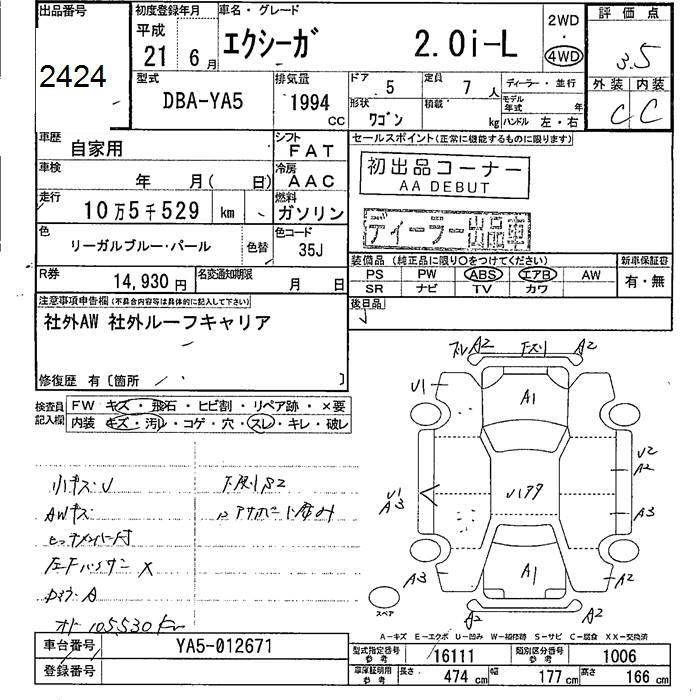 出品番号
2424
初度登録年月
平成
21年 6月
車名・グレード
エクシーガ 2.0i-L
2WD
・
4WD
評価点
3.5
外装 内装
C C
型式
DBA-YA5
排気量
1994 CC
ドア 5
定員 7人
ディーラー・並行
形状 ワゴン
積載 kg
モデル年式 年
ハンドル 左・右
車歴
自家用
シフト
FAT
車検
年 月( 日)
冷房
AAC
走行
10万5千529 km
燃料
ガソリン
色
リーガルブルー・パール
色替
色コード
35J
R券
14,930円
名変通知期限
月 日
セールスポイント(正常に機能するものに限ります)
初出品コーナー
AA DEBUT
ディーラー出品車
装備品(純正品に限り○をつけてください)
PS PW ABS エアB AW
SR ナビ TV カワ
新車保証書
有・無
後日品
注意事項申告欄(不具合内容等は具体的に記入して下さい)
社外AW 社外ルーフキャリア
修復歴 有〔箇所 〕
検査員記入欄
FW キズ・飛石・ヒビ割・リペア跡・×要
内装 キズ・汚レ・コゲ・穴・スレ・キレ・破レ
小キズ・U
AWキズ
ヒッチメンバー付
左Fハウサー X
オド 105,530 km
A2 下スリ A2
U1
A1
U2
A2
U1
A3
A3
A3
A1
A2
A2
A2
スペア
A-キズ E-エクボ U-凹み W-補修跡 S-サビ C-腐食 XX-交換済
車台番号
YA5-012671
登録番号
型式指定番号
参考
16111
類別区分番号
参考
1006
車庫証明用
参考
長さ 474 cm
幅 177 cm
高さ 166 cm